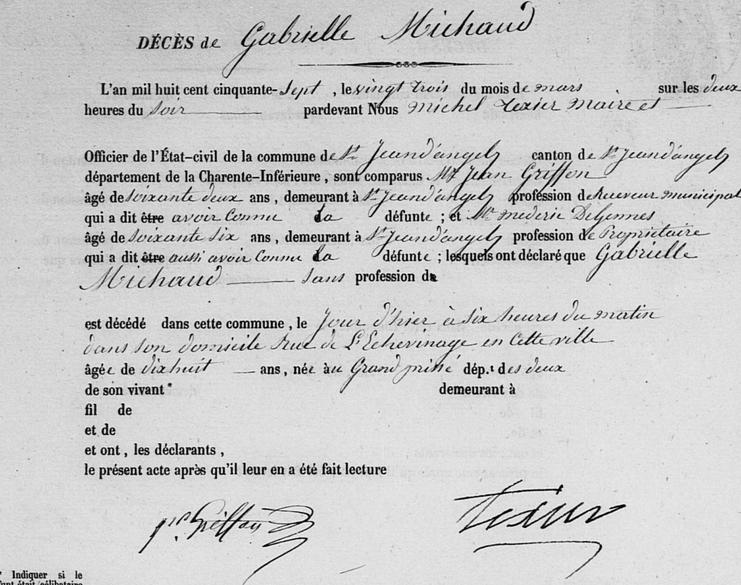 DÉCÈS de Gabrielle Michaud
L'an mil huit cent cinquante-sept, le vingt trois du mois de mars sur les deux
heures du soir pardevant Nous Michel Texier Maire et
Officier de l'État-civil de la commune de St Jean d'angely canton de St Jean d'angely
département de la Charente-Inférieure, sont comparus Mr Jean Griffon
âgé de soixante deux ans, demeurant à St Jean d'angely profession de Receveur municipal
qui a dit être avoir connu La défunte; et Mr mederic Degennes
âgé de soixante six ans, demeurant à St Jean d'angely profession de Propriétaire
qui a dit être aussi avoir connu La défunte; lesquels ont déclaré que Gabrielle
Michaud sans profession de
est décédé dans cette commune, le Jour d'hier à six heures du matin
dans son domicile Rue de L'Echevinage en Cette ville
âgée de dix huit ans, née au Grand prissé dép.t des deux
de son vivant* demeurant à
fil de
et de
et ont, les déclarants,
le présent acte après qu'il leur en a été fait lecture
Griffon Texier
* Indiquer si le